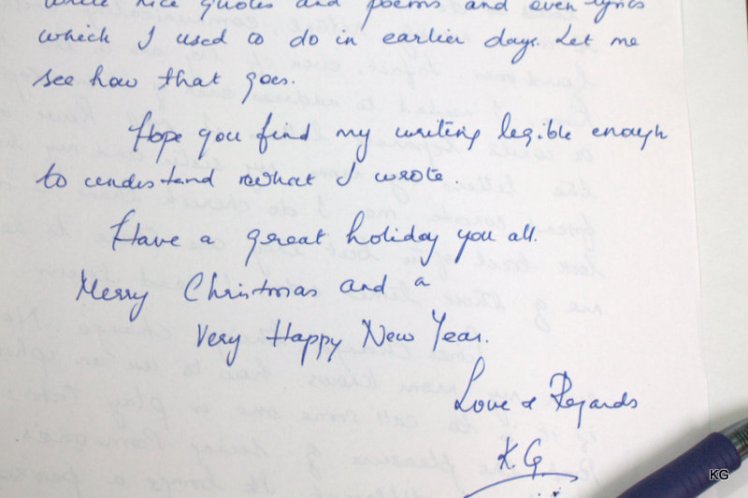 write nice quotes and poems and even lyrics
which I used to do in earlier days. Let me
see how that goes.
Hope you find my writing legible enough
to understand what I wrote.
Have a great holiday you all.
Merry Christmas and a
Very Happy New Year.
Love & Regards
K.G
KG